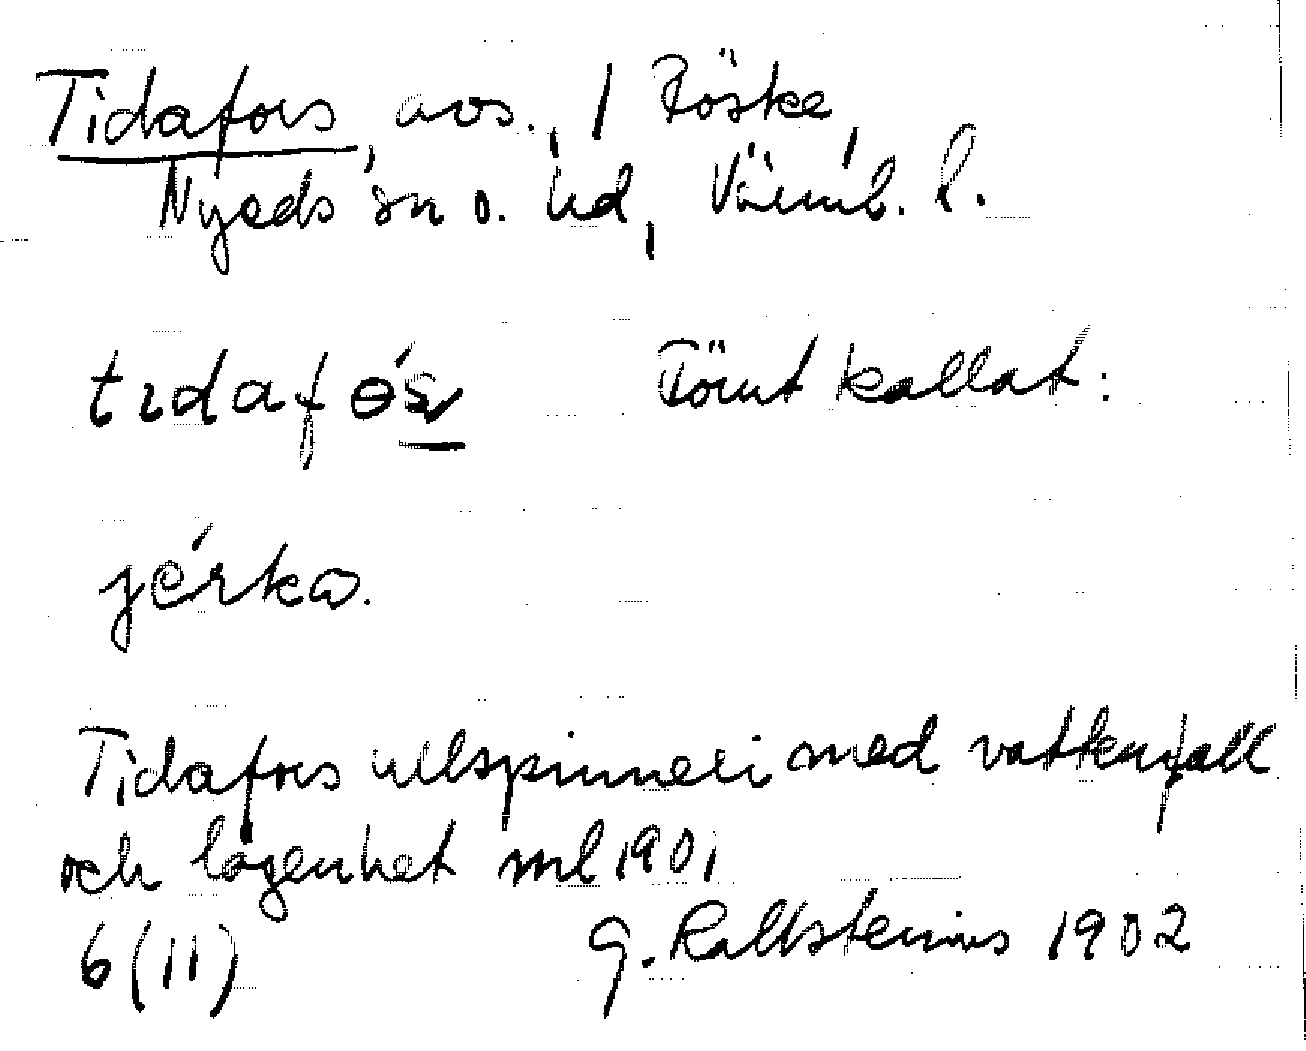 Tidafors, avs., / Röske,
Nyeds sn o. hd, Värml. l.
tıdafɵ́s Förut kallat:
jérka.
Tidafors ullspinneri med vattenfall
och lägenhet ml 1901
6 (11) G. Kallstenius 1902